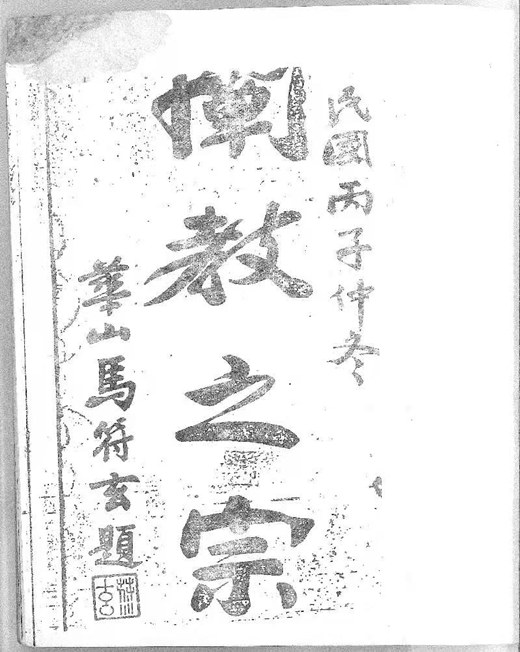 民國丙子仲冬
闡教之宗
華山馬符玄題